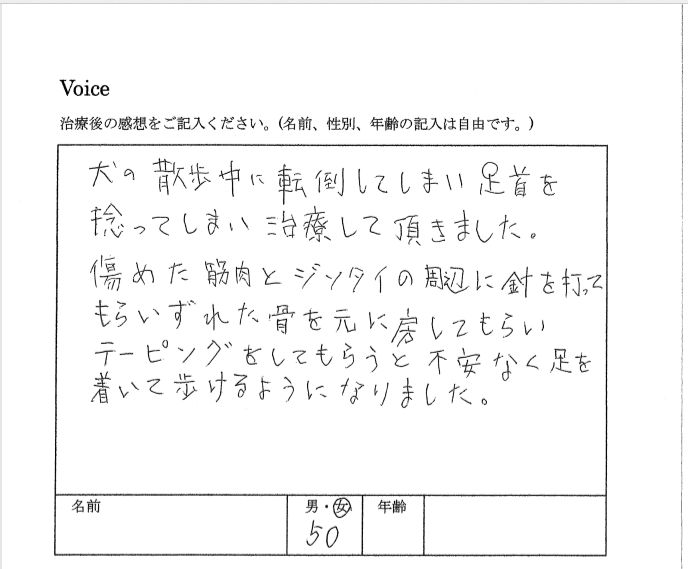 Voice
治療後の感想をご記入ください。(名前、性別、年齢の記入は自由です。)
犬の散歩中に転倒してしまい足首を
捻ってしまい治療して頂きました。
傷めた筋肉とジンタイの周辺に針を打って
もらいずれた骨を元に房してもらい
テーピングをしてもらうと不安なく足を
着いて歩けるようになりました。
名前 男・女 年齢
50